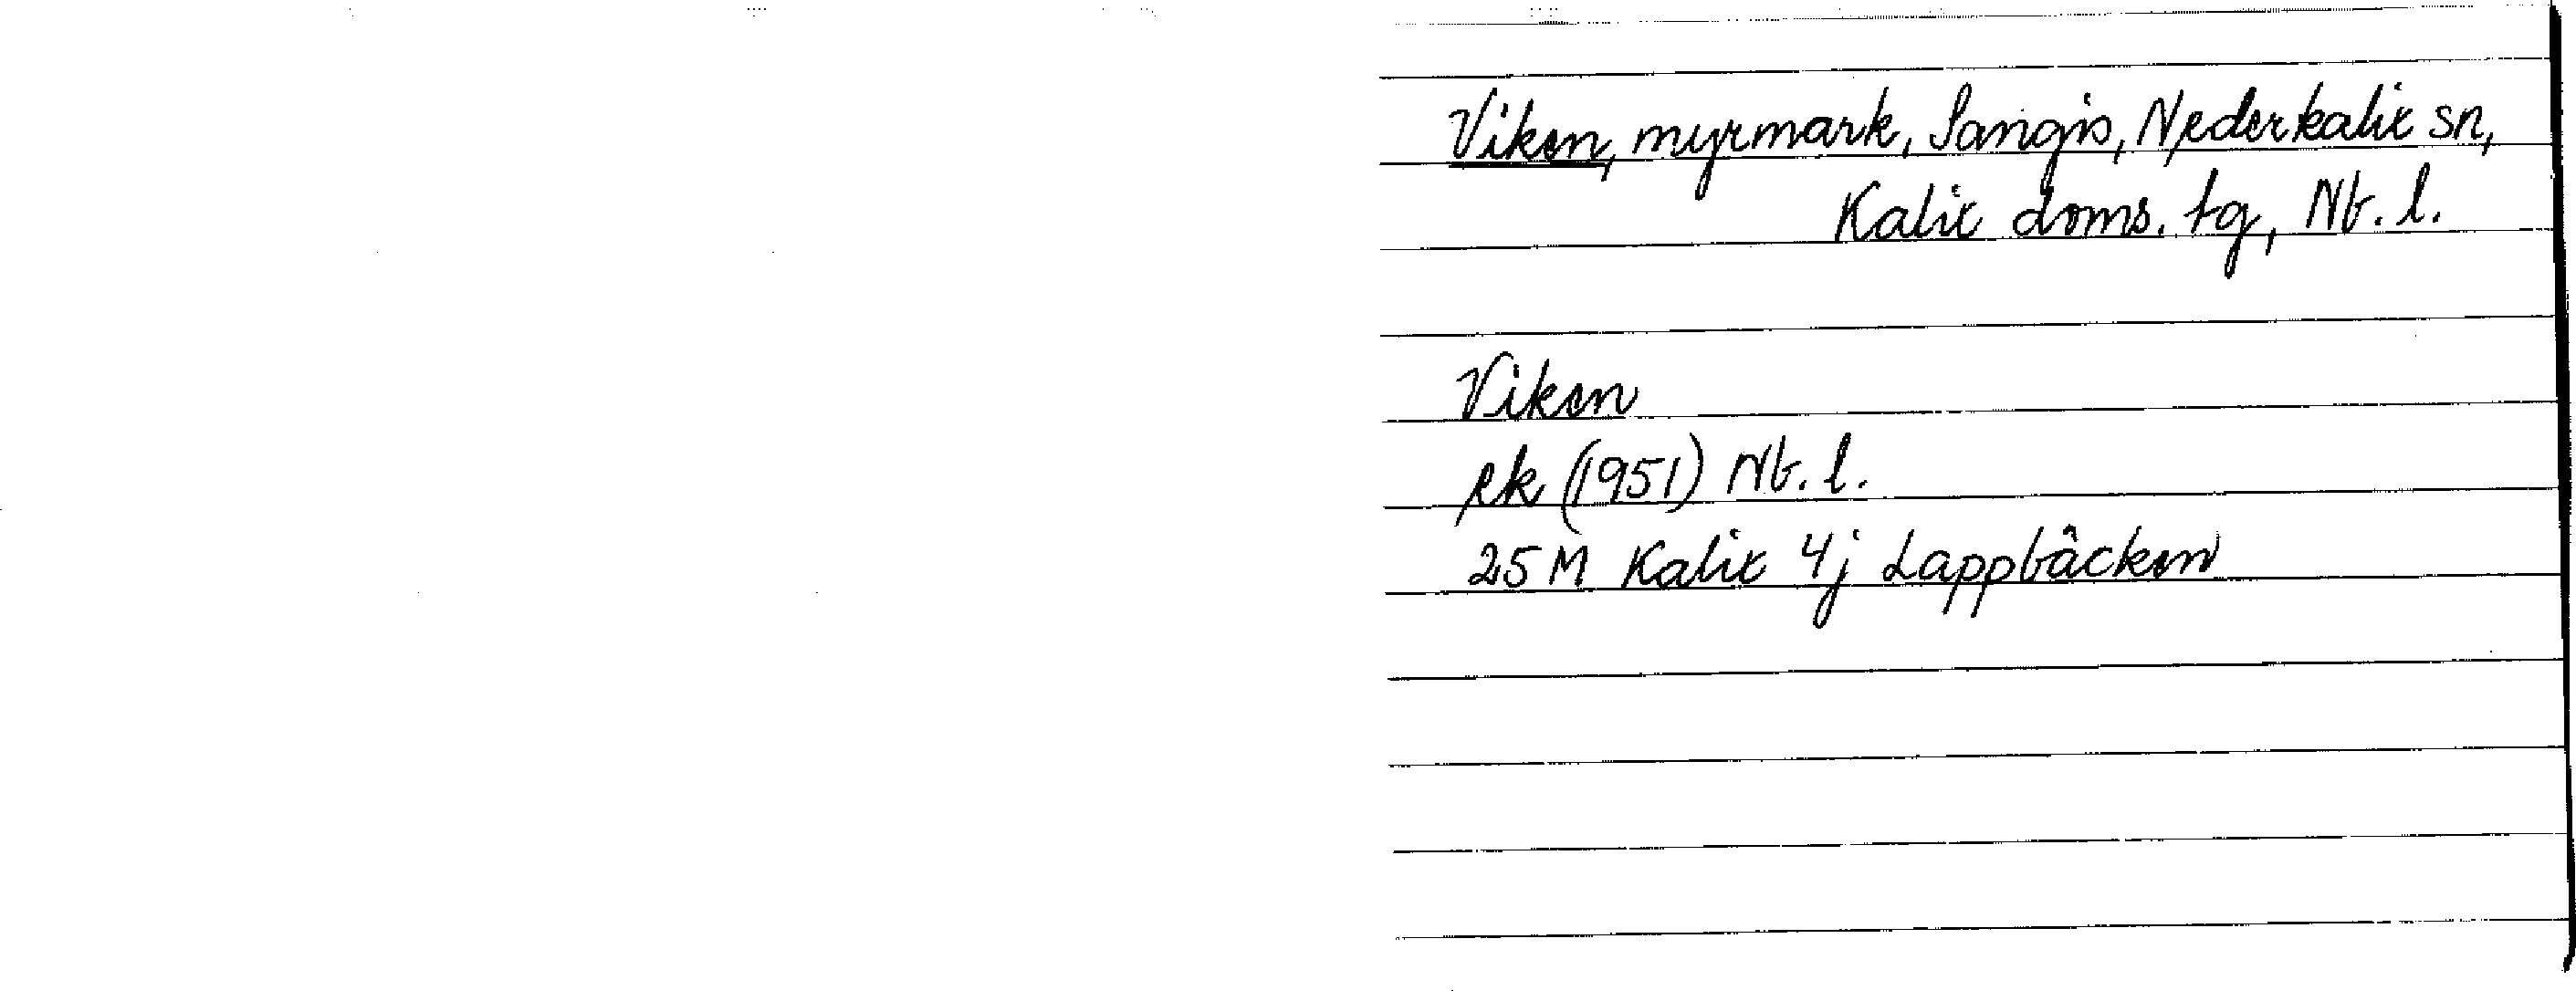 Viken, myrmark, Sangis, Nederkalix sn,
Kalix doms. tg, Nb. l.
Viken
ek (1951) Nb. l.
25 M Kalix 4j Lappbäcken